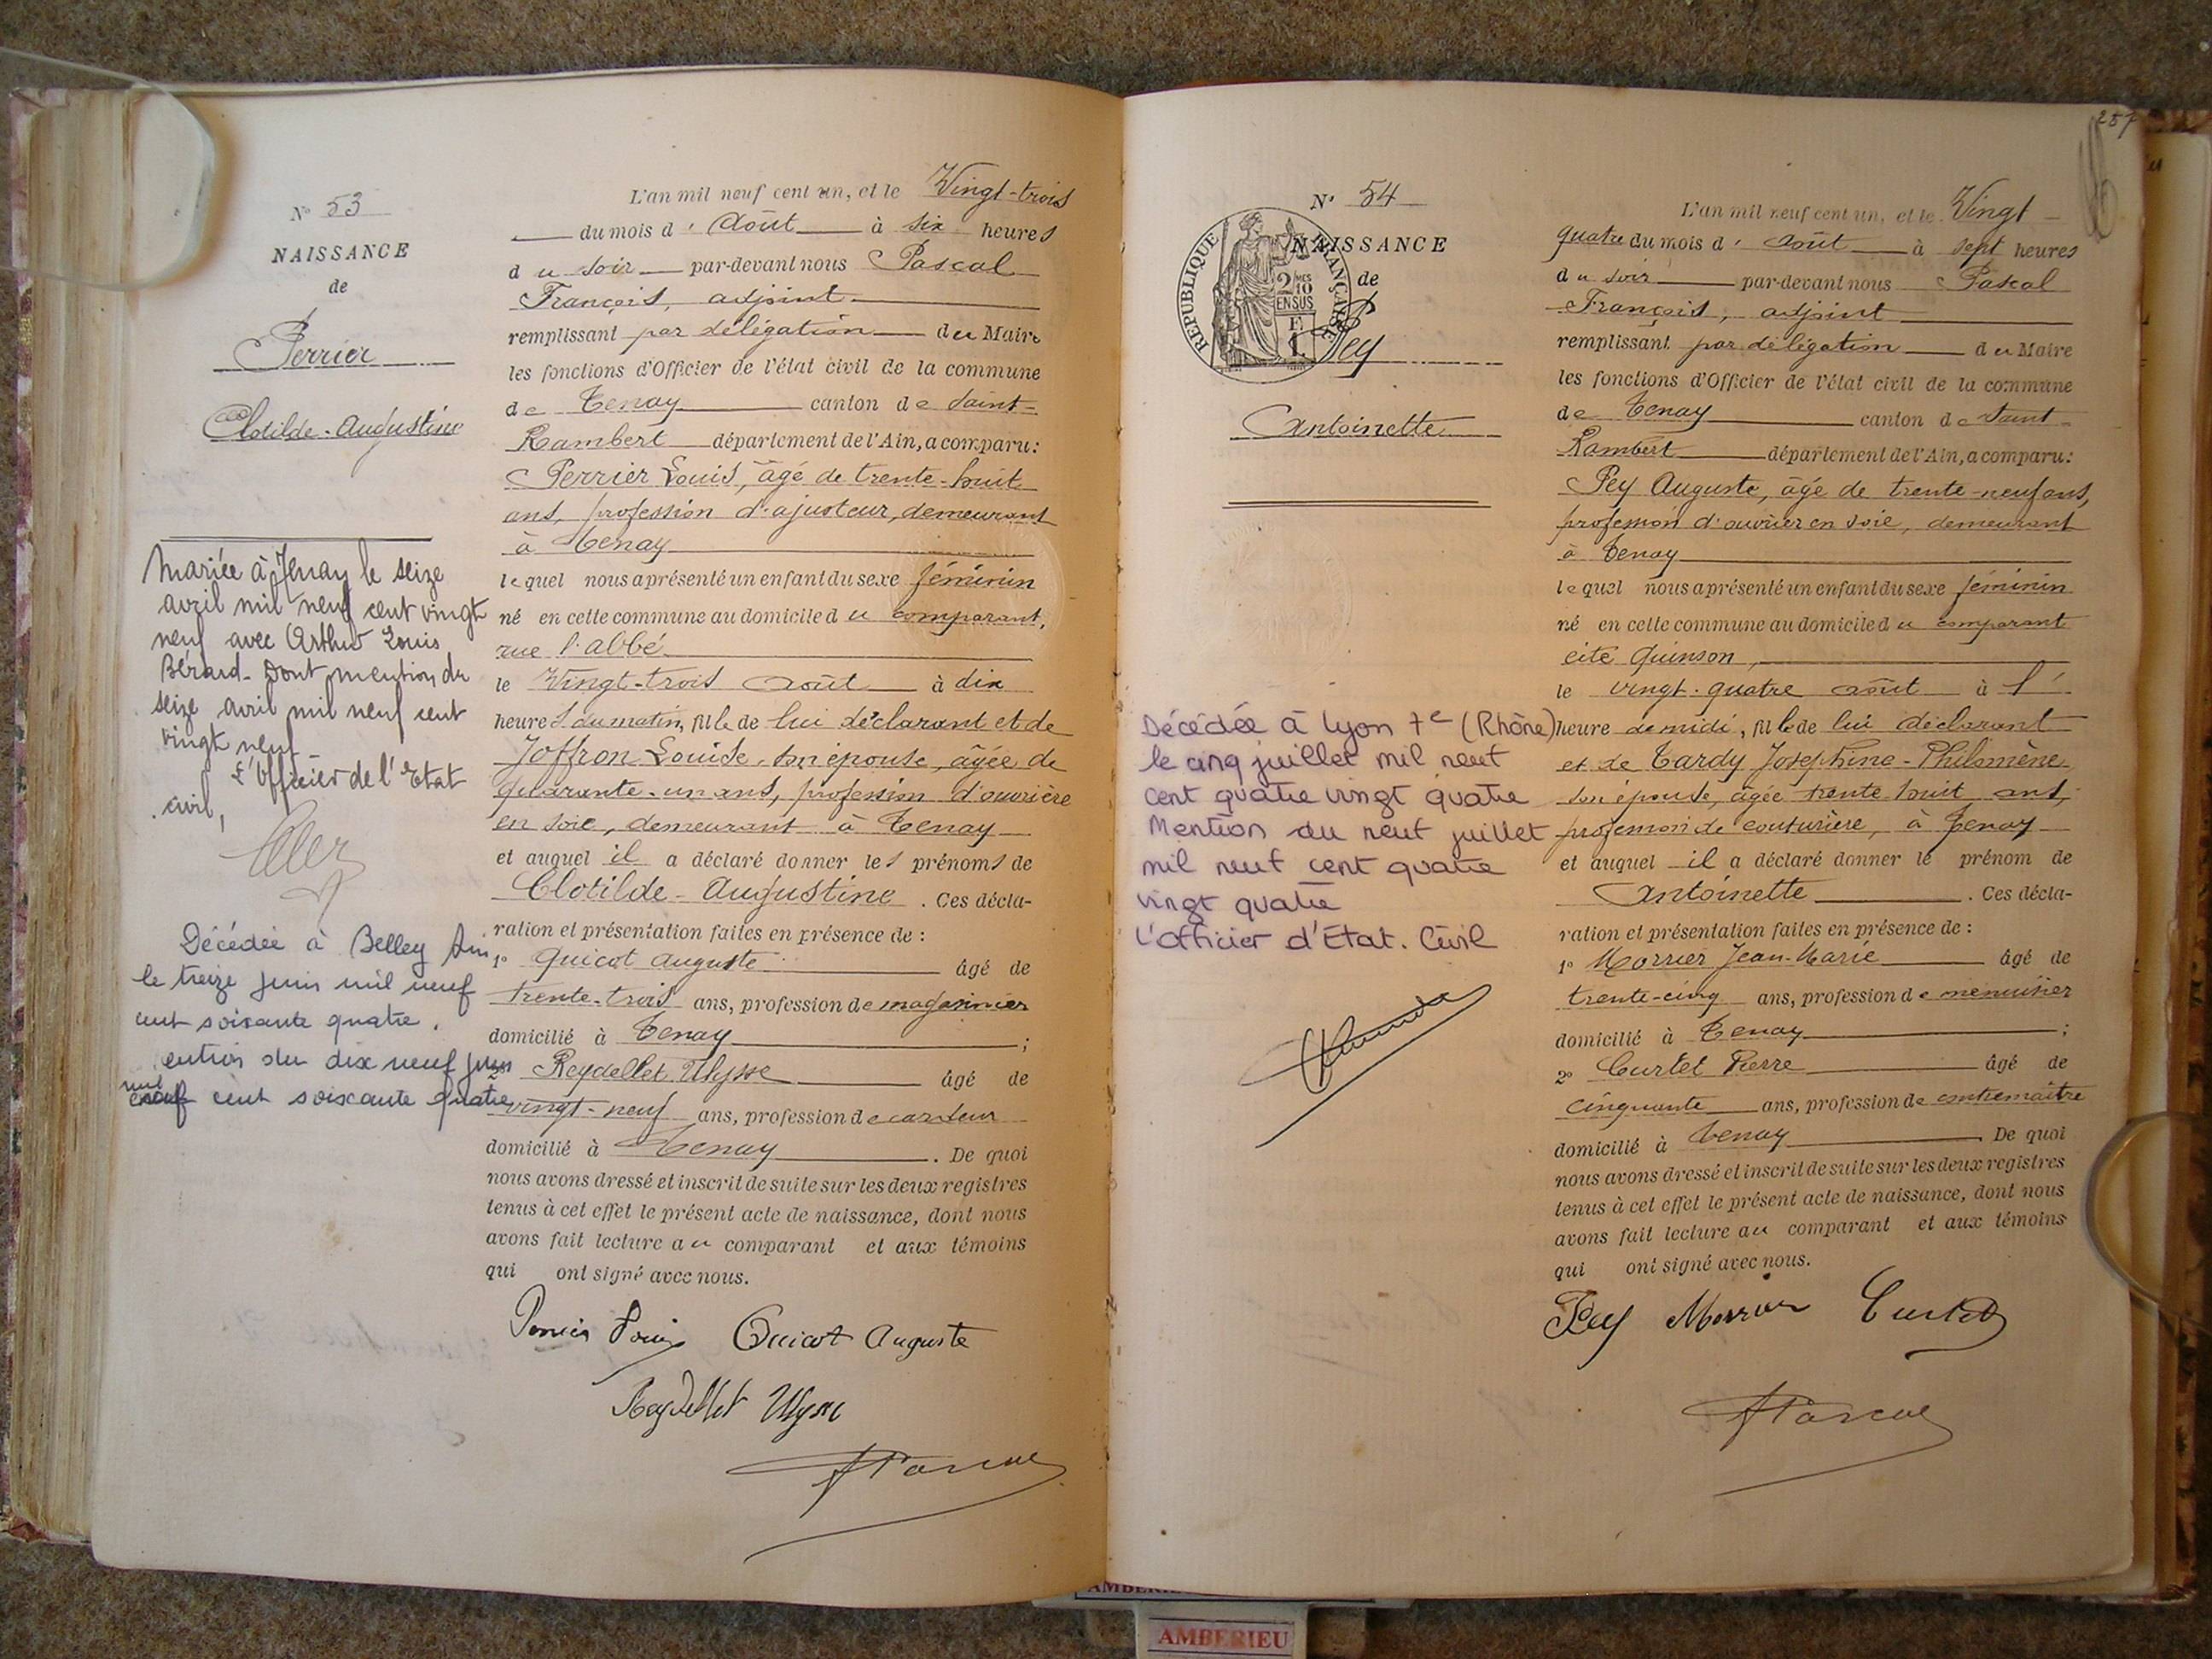 N° 53
NAISSANCE
de
Perrier
Clotilde-Augustine
Mariée à Tenay le seize
avril mil neuf cent vingt
neuf avec Arthur Louis
Bérard - Dont mention du
seize avril mil neuf cent
vingt neuf -
L'Officier de l'Etat
civil,
Décédée à Belley Ain
le treize juin mil neuf
cent soixante quatre.
ention du dix neuf juin
mil
neuf cent soixante quatre
L'an mil neuf cent un, et le Vingt-trois
du mois d'Août à six heures
du soir par-devant nous Pascal
François, adjoint
remplissant par délégation du Maire
les fonctions d'Officier de l'état civil de la commune
de Tenay canton de Saint-
Rambert département de l'Ain, a comparu:
Perrier Louis, âgé de trente-huit
ans, profession d'ajusteur, demeurant
à Tenay
lequel nous a présenté un enfant du sexe féminin
né en cette commune au domicile du comparant,
rue l'abbé
le Vingt-trois août à dix
heures du matin, fille de lui déclarant et de
Joffron Louise, son épouse, âgée de
quarante-un ans, profession d'ouvrière
en soie, demeurant à Tenay
et auquel il a déclaré donner les prénoms de
Clotilde-Augustine. Ces décla-
ration et présentation faites en présence de :
1° Quicot Auguste âgé de
trente-trois ans, profession de magasinier
domicilié à Tenay ;
2° Reydellet Ulysse âgé de
vingt-neuf ans, profession de cardeur
domicilié à Tenay. De quoi
nous avons dressé et inscrit de suite sur les deux registres
tenus à cet effet le présent acte de naissance, dont nous
avons fait lecture au comparant et aux témoins
qui ont signé avec nous.
Perrier Louis Quicot Auguste
Reydellet Ulysse
FPascal
257
N° 54
REPUBLIQUE FRANÇAISE
2/10 EN SUS
NAISSANCE
de
Pey
Antoinette
Décédée à Lyon 7e (Rhône)
le cinq juillet mil neuf
cent quatre vingt quatre
Mention du neuf juillet
mil neuf cent quatre
vingt quatre
L'officier d'Etat. Civil
L'an mil neuf cent un, et le Vingt-
quatre du mois d'Août à sept heures
du soir par-devant nous Pascal
François, adjoint
remplissant par délégation du Maire
les fonctions d'Officier de l'état civil de la commune
de Tenay canton de Saint-
Rambert département de l'Ain, a comparu:
Pey Auguste, âgé de trente-neuf ans,
profession d'ouvrier en soie, demeurant
à Tenay
lequel nous a présenté un enfant du sexe féminin
né en cette commune au domicile du comparant
cité Quinson,
le vingt-quatre août à l'
heure de midi, fille de lui déclarant
et de Tardy Joséphine-Philomène
son épouse, âgée trente huit ans,
profession de couturière, à Tenay
et auquel il a déclaré donner le prénom de
Antoinette. Ces décla-
ration et présentation faites en présence de :
1° Morrier Jean-Marie âgé de
trente-cinq ans, profession de menuisier
domicilié à Tenay ;
2° Curtet Pierre âgé de
cinquante ans, profession de contremaître
domicilié à Tenay. De quoi
nous avons dressé et inscrit de suite sur les deux registres
tenus à cet effet le présent acte de naissance, dont nous
avons fait lecture au comparant et aux témoins
qui ont signé avec nous.
Pey Morrier Curtet
FPascal
AMBERIEU